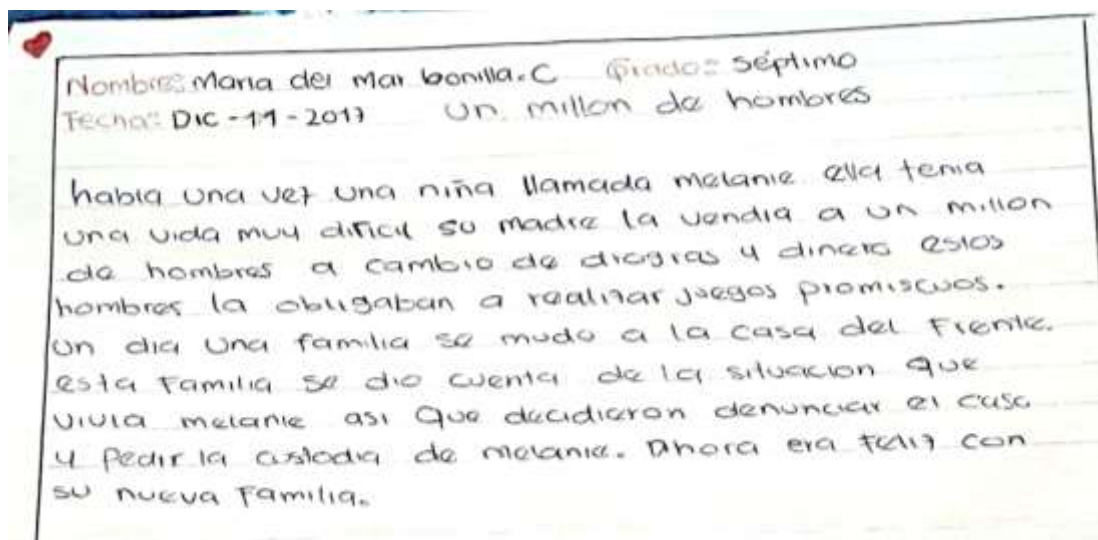 Nombre: Maria del Mar bonilla.C Grado: Séptimo
Fecha: DIC-11-2017 Un millon de hombres
habia una vez una niña llamada melanie ella tenia
una vida muy dificil su madre la vendia a un millon
de hombres a cambio de drogras y dinero estos
hombres la obligaban a realizar juegos promiscuos.
un dia una familia se mudo a la casa del frente.
esta familia se dio cuenta de la situacion que
vivia melanie asi que decidieron denunciar el caso
y pedir la custodia de melanie. Ahora era feliz con
su nueva familia.